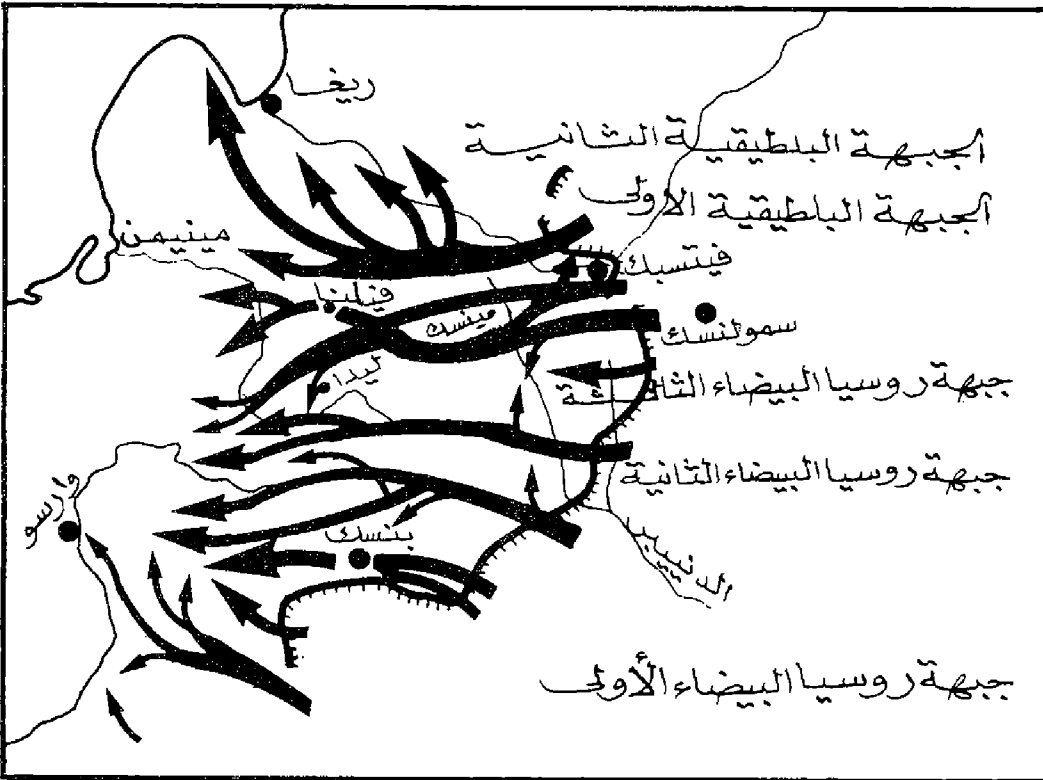 ريغا
الجبهة البلطيقية الثانية
الجبهة البلطيقية الاولى
مينيمن
فيتسبك
فيلنا
مينسك
سمولنسك
ليدا
جبهة روسيا البيضاء الثالثة
جبهة روسيا البيضاء الثانية
وارسو
بنسك
الدنييبر
جبهة روسيا البيضاء الأولى